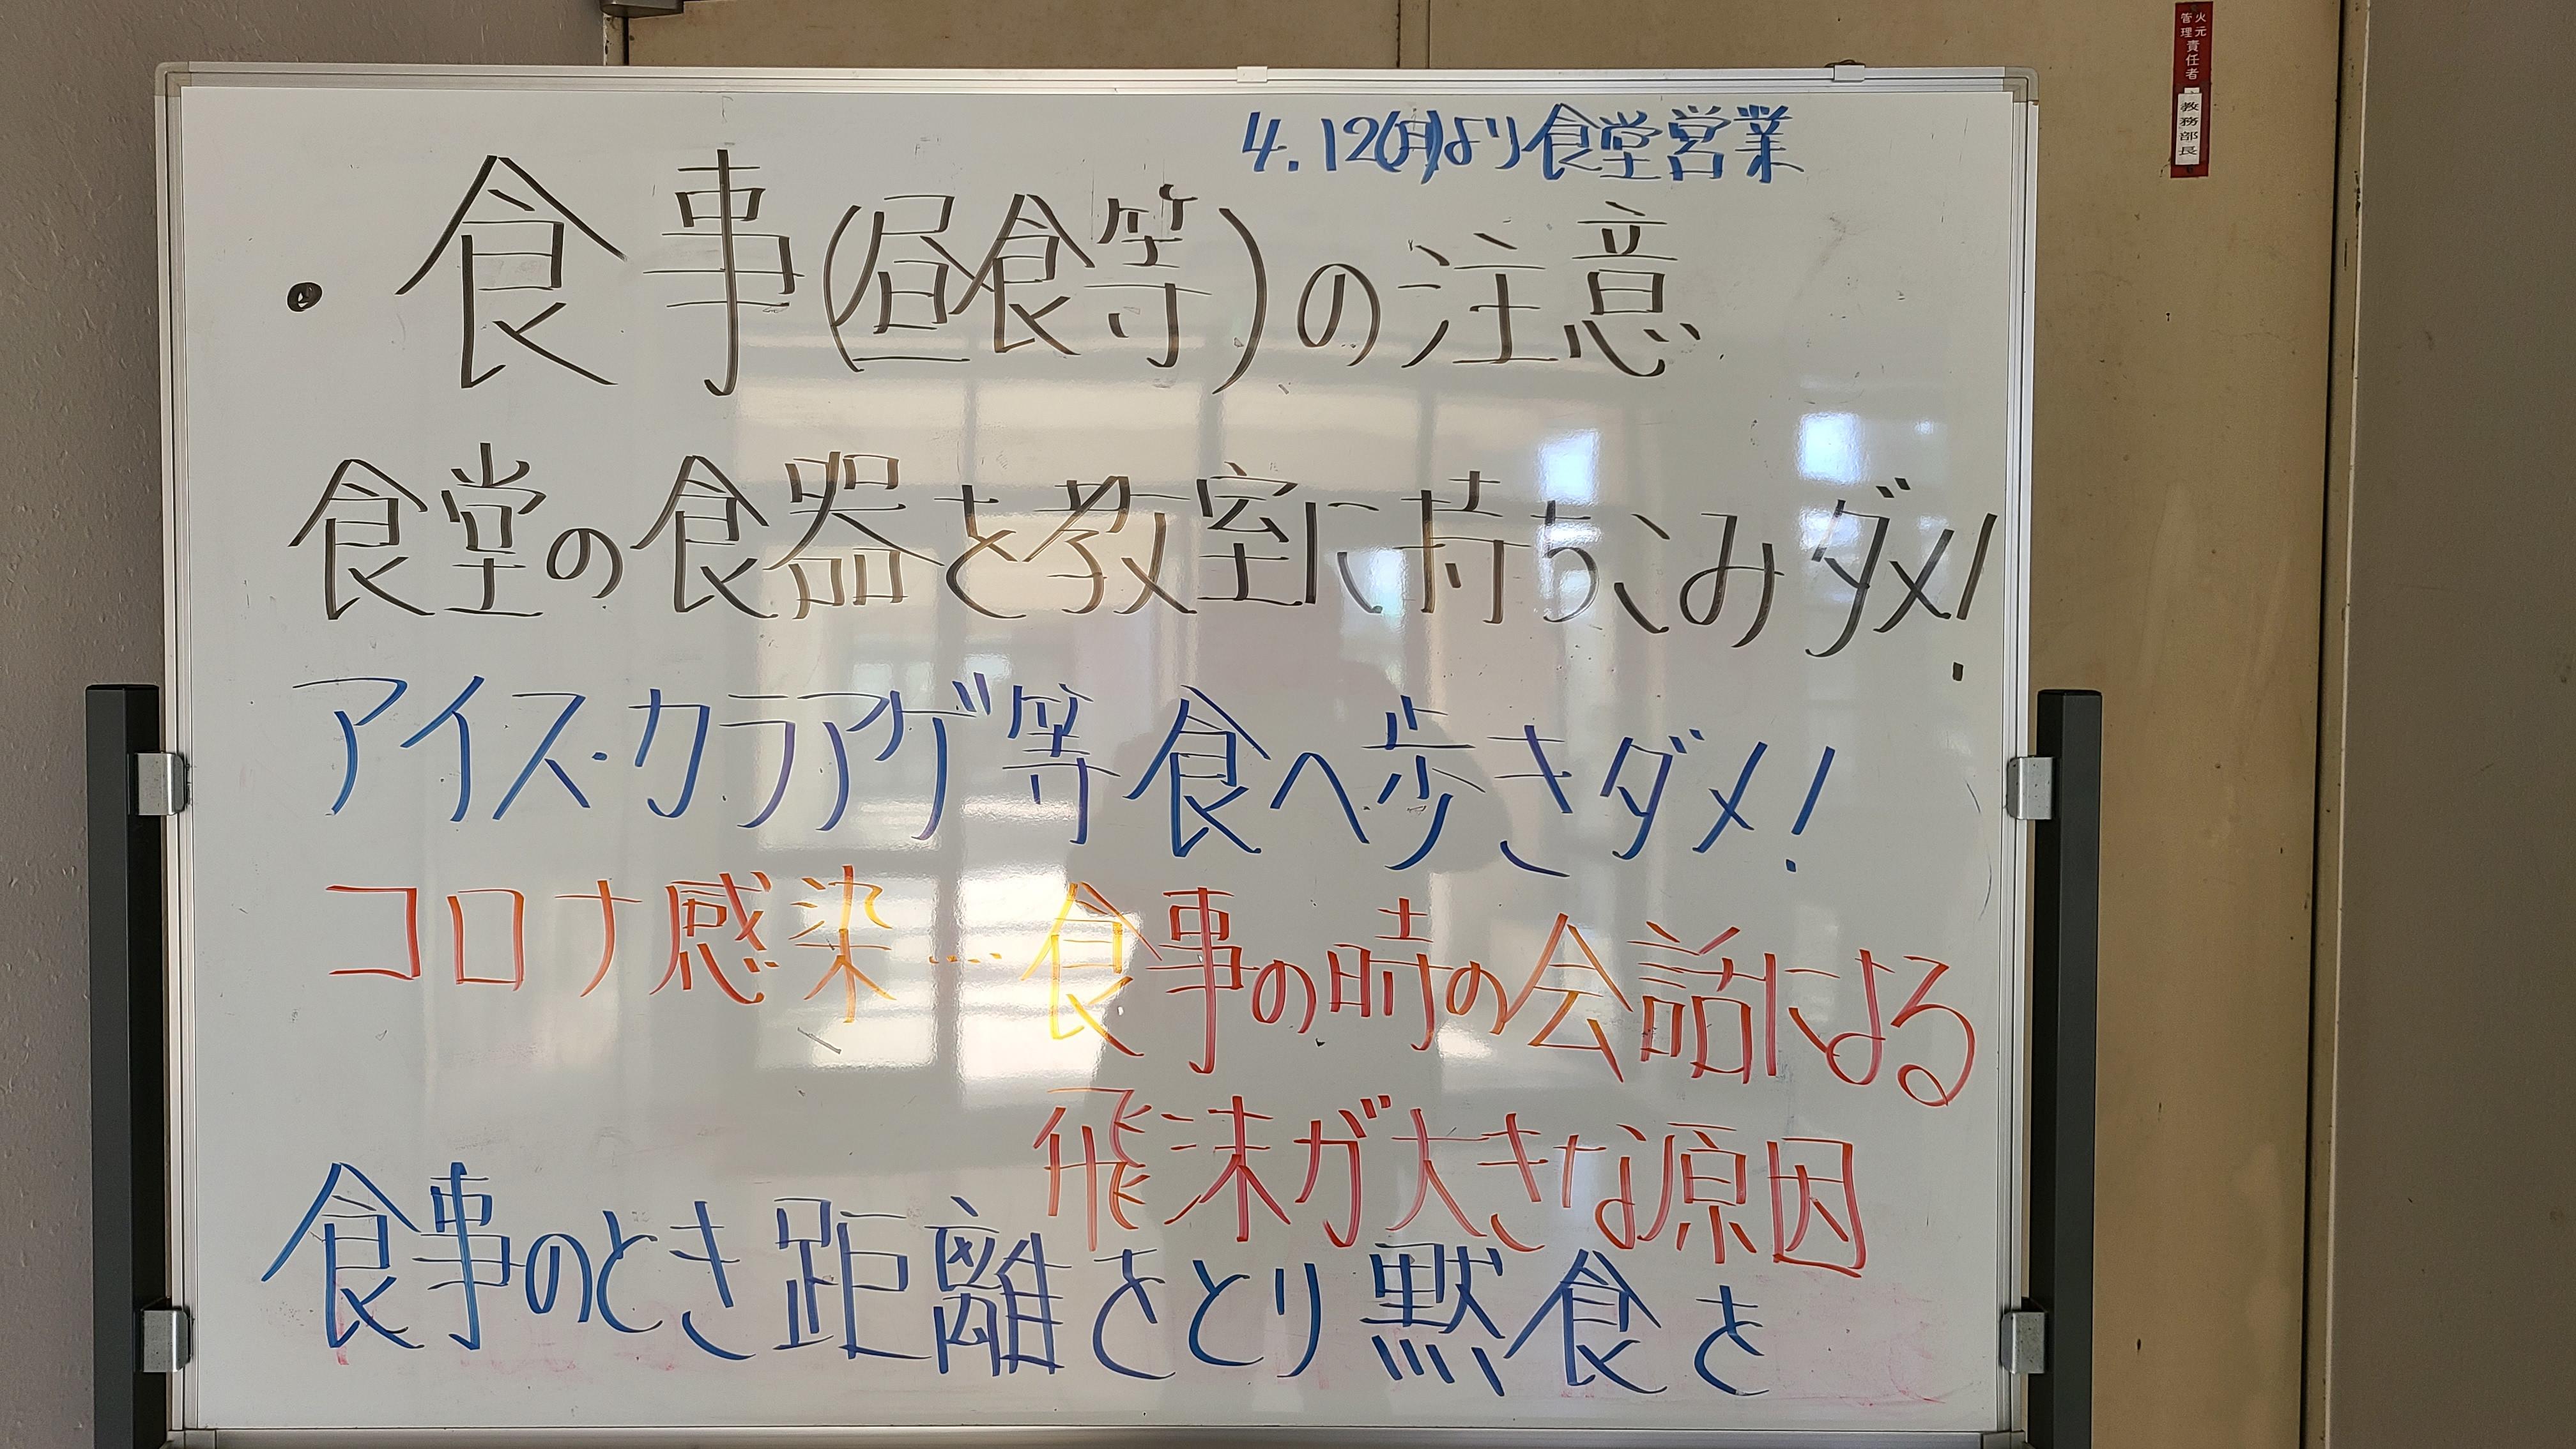 4.12(月)より食堂営業
・食事(昼食等)の注意
食堂の食器を教室に持ちこみダメ!
アイス・カラアゲ等食べ歩きダメ!
コロナ感染……食事の時の会話による
飛沫が大きな原因
食事のとき距離をとり黙食を
火元
管理
責任者
教務部長